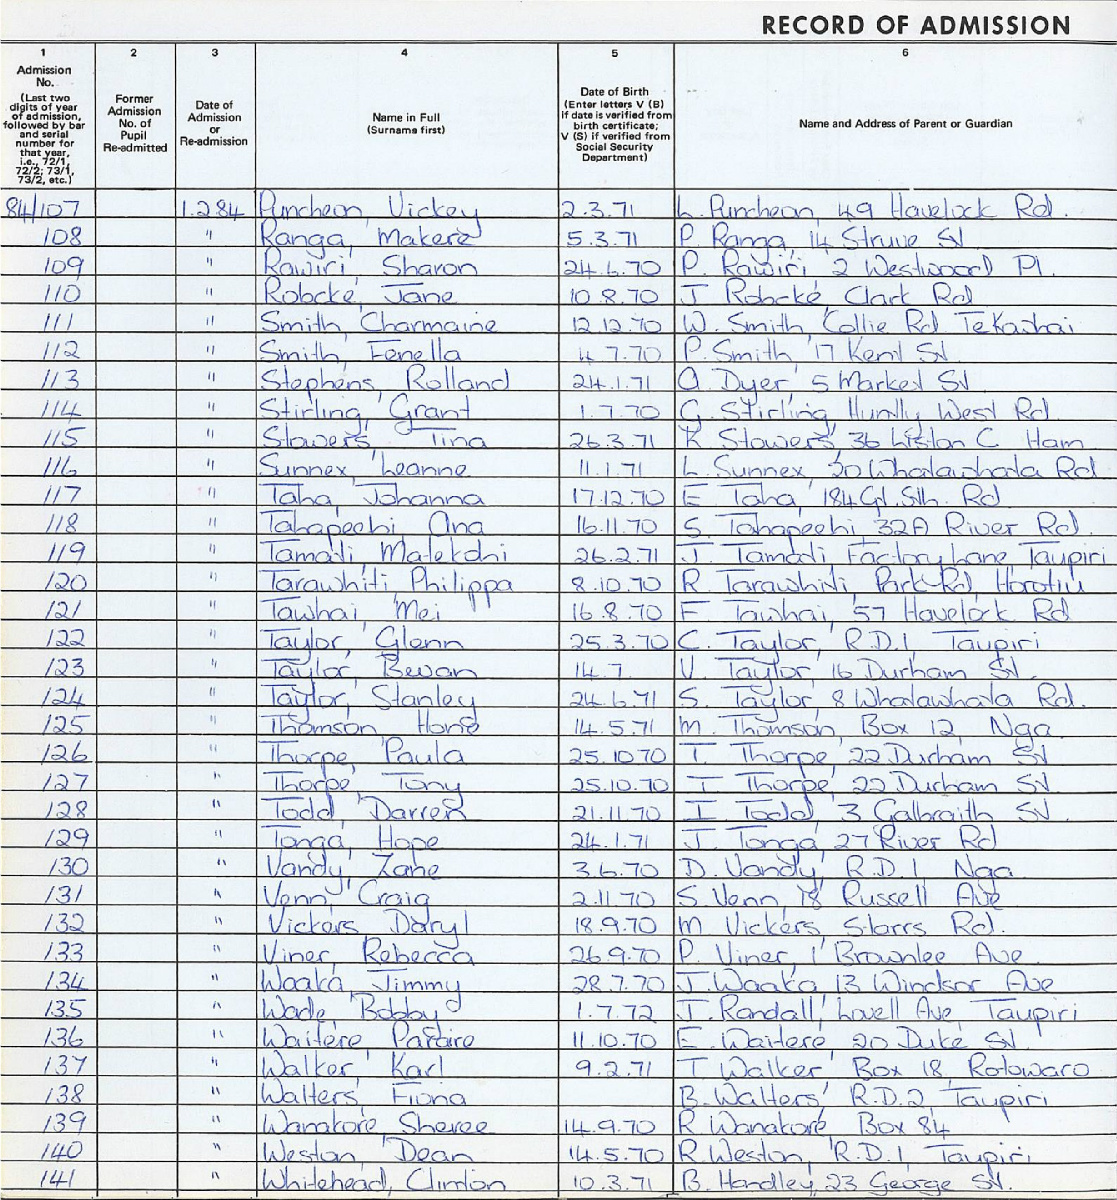 RECORD OF ADMISSION
1 2 3 4 5 6
Admission No. (Last two digits of year of admission, followed by bar and serial number for that year, i.e., 72/1, 72/2; 73/1, 73/2, etc.)
Former Admission No. of Pupil Re-admitted
Date of Admission or Re-admission
Name in Full (Surname first)
Date of Birth (Enter letters V (B) if date is verified from birth certificate; V (S) if verified from Social Security Department)
Name and Address of Parent or Guardian
84/107 1.2.84 Puncheon, Vickey 2.3.71 L. Puncheon, 49 Havelock Rd.
108 " Ranga, Makere 5.3.71 P. Ranga, 14 Struve St
109 " Rawiri, Sharon 24.6.70 P. Rawiri 2 Westwood Pl.
110 " Robcké, Jane 10.8.70 J Robcké, Clark Rd
111 " Smith, Charmaine 12.12.70 W. Smith, Collie Rd
112 " Smith, Fenella 4.7.70 P. Smith, 17 Kent St
113 " Stephens, Rolland 24.1.71 Dyer, 5 Market St
114 " Stirling, Grant 1.7.70 G. Stirling Huntly West Rd
115 " Stowers, Tina 26.3.71 K Stowers, 36 Liston C Ham
116 " Sunnex, Leanne 11.1.71 L. Sunnex, 30 Whatawhata Rd
117 " Taha, Johanna 17.12.70 E Taha, 184 Gt. Sth. Rd
118 " Tahapeehi Ana 16.11.70 S. Tahapeehi, 32A River Rd.
119 " Tamati 26.2.71 J. Tamati Factory Lane Taupiri
120 " Tarawhiti Philippa 8.10.70 R Tarawhiti, Park Rd, Horotiu
121 " Tawhai, Mei 16.8.70 F Tawhai, 57 Havelock Rd
122 " Taylor, Glenn 25.3.70 C. Taylor, R.D.1 Taupiri
123 " Taylor, Bevan 14.7 V. Taylor, 16 Durham St.
124 " Taylor, Stanley 24.6.71 S. Taylor 8 Whatawhata Rd.
125 " Thomson 14.5.71 M. Thomson, Box 12, Nga
126 " Thorpe, Paula 25.10.70 T. Thorpe, 22 Durham St
127 " Thorpe, Tony 25.10.70 T Thorpe, 22 Durham St
128 " Todd, Darren 21.11.70 I. Todd, 3 Galbraith St
129 " Tonga, Hope 24.1.71 J. Tonga, 27 River Rd
130 " Vandy, Zane 3.6.70 D. Vandy, R.D.1 Nga
131 " Venn, Craig 2.11.70 S. Venn, 18 Russell Ave
132 " Vickers Daryl 18.9.70 M Vickers Starrs Rd.
133 " Viner, Rebecca 26.9.70 P. Viner, 1 Brownlee Ave
134 " Waaka, Jimmy 28.7.70 J. Waaka 13 Windsor Ave
135 " Wade, Bobby 1.7.72 J. Randall, Lovell Ave, Taupiri
136 " Waitere Pafaire 11.10.70 E. Waitere 20 Duke St
137 " Walker, Karl 9.2.71 T Walker, Box 18, Rotowaro
138 " Walters, Fiona B. Walters, R.D.2 Taupiri
139 " Wanakore Sheree 14.9.70 R Wanakore, Box 84
140 " Weston, Dean 14.5.70 R. Weston, R.D.1 Taupiri
141 " Whitehead, Clinton 10.3.71 B. Handley, 23 George St.